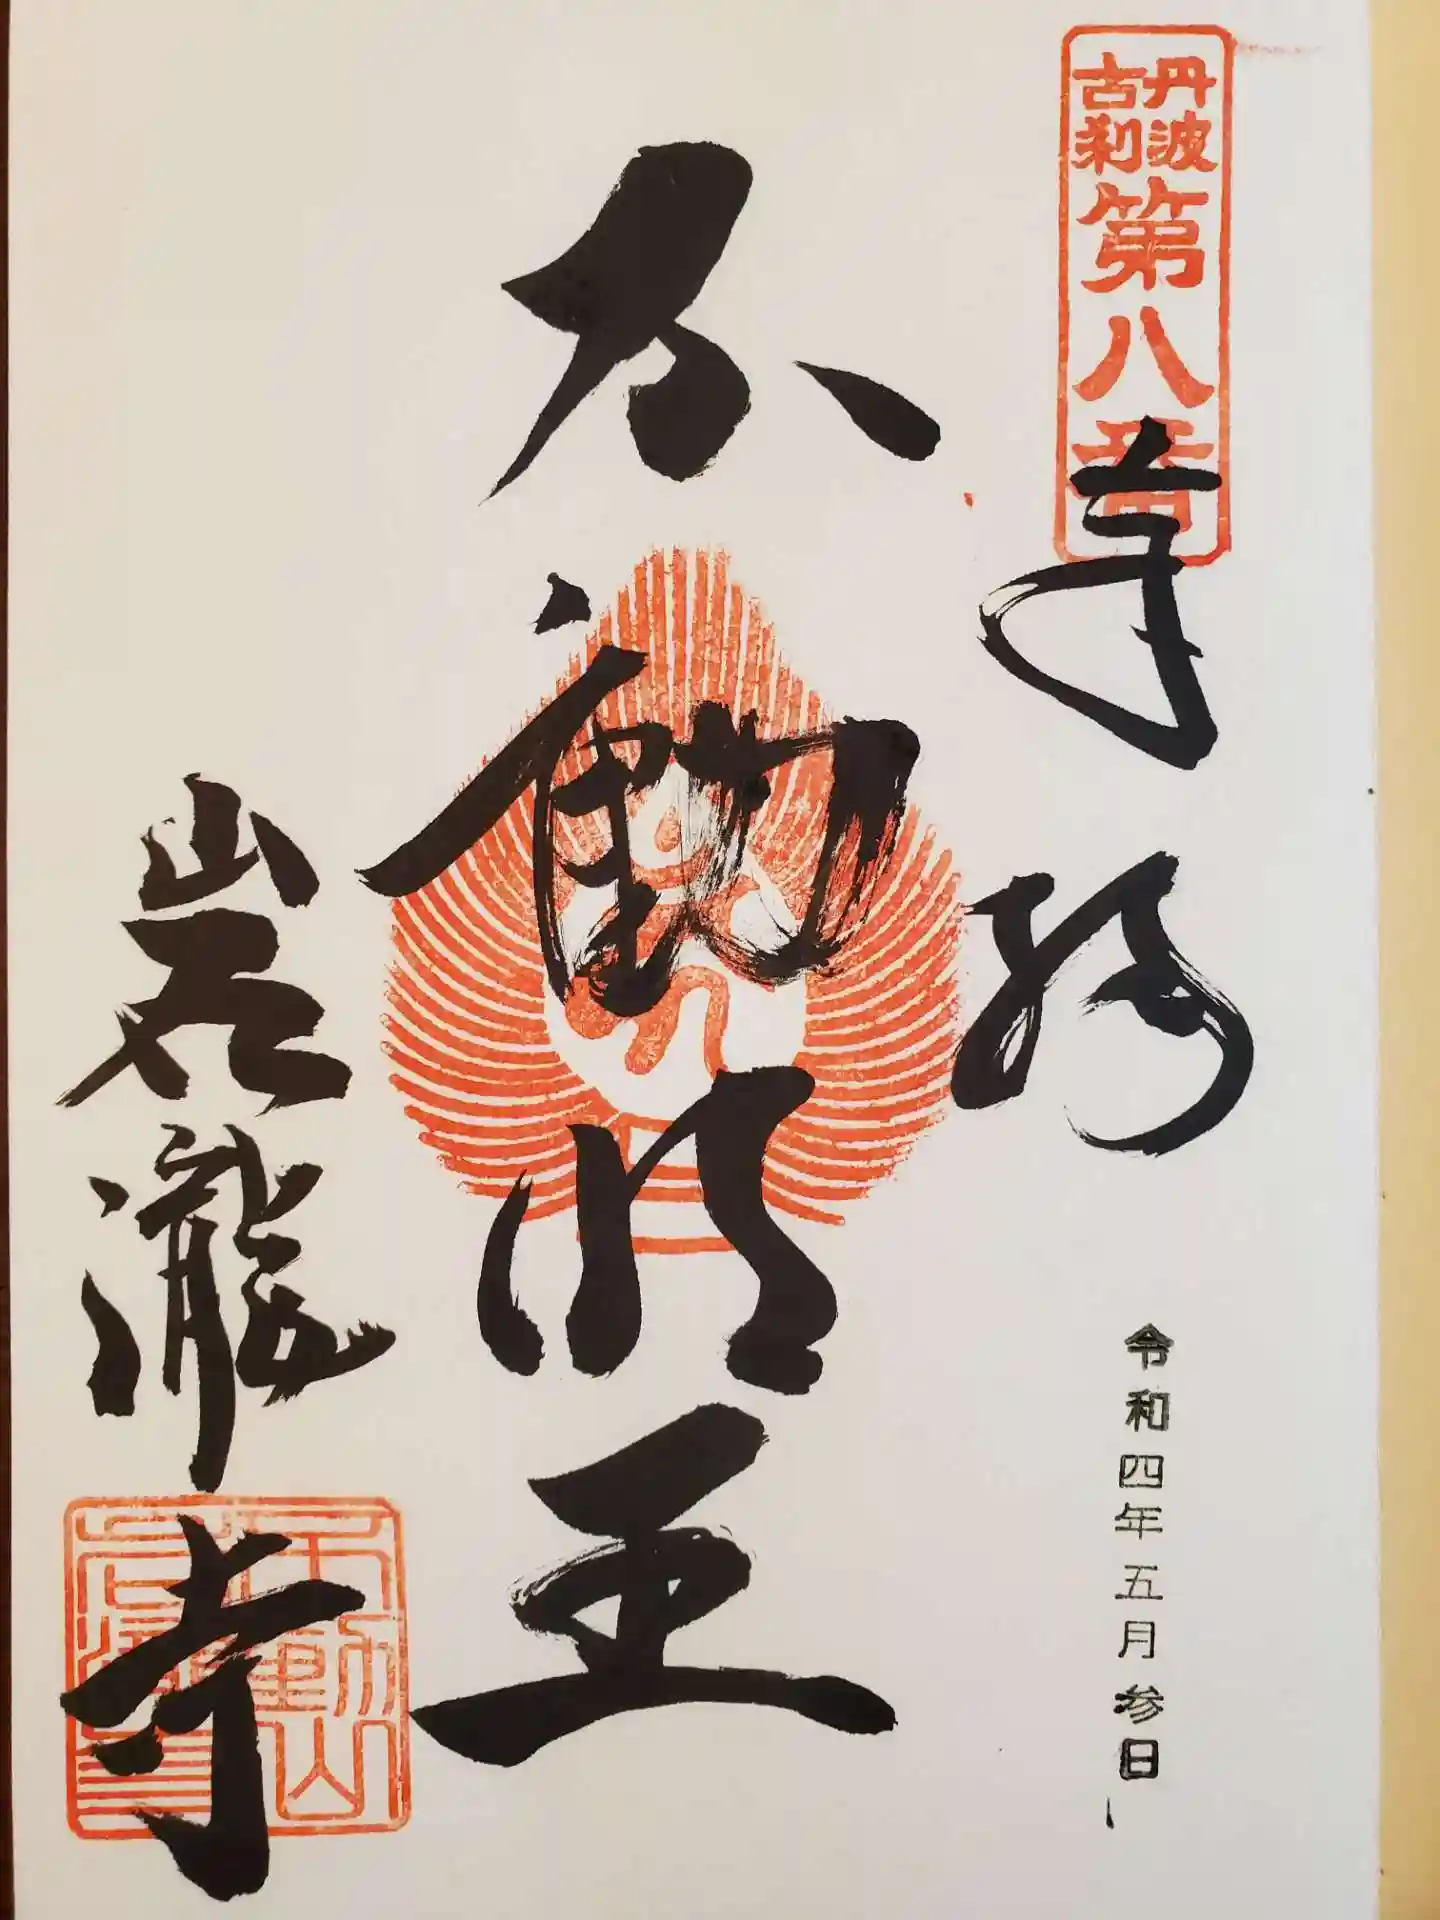 丹波
古刹
第八番
奉拝
令和四年五月参日
不動明王
岩瀧寺
不動山